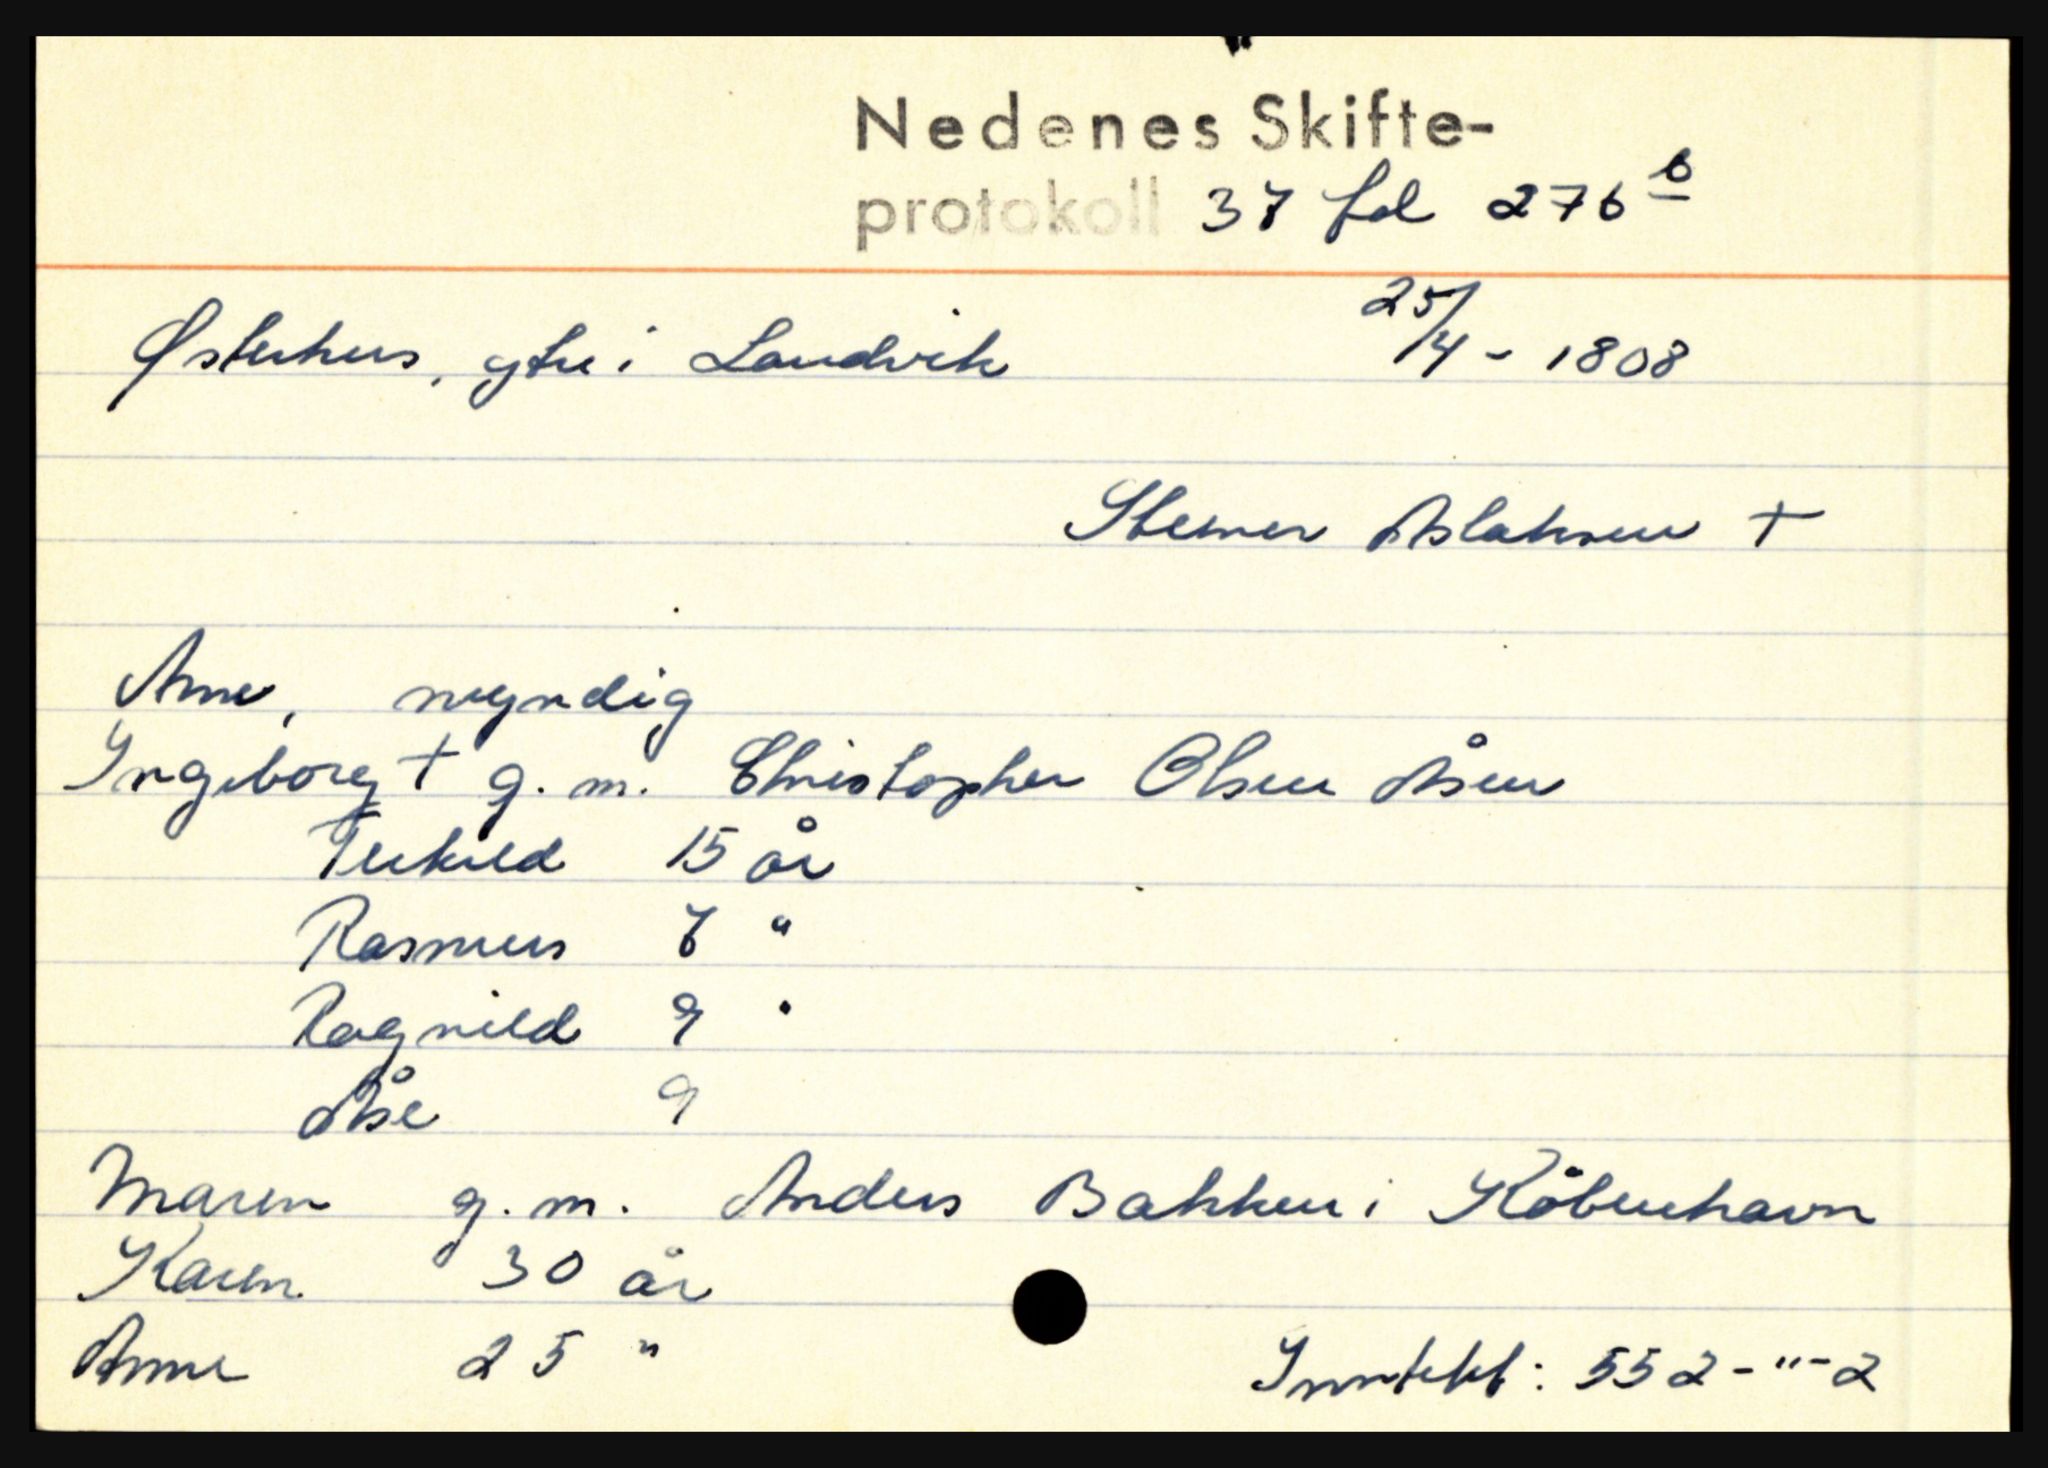 Nedenes Skifte-
protokoll 37 fol 276 b
Østerhus, ytre i Landvik 25/4 - 1808
Steiner Aslaksen +
Arne, myndig
Ingeborg + g. m. Christopher Olsen Åsen
Terkild 15 år
Rasmus 7 "
Ragnild 9 "
Åse 9
Maren g. m. Anders Bakken i København
Karen 30 år
Anne 25 "
Inntekt: 552-"-2